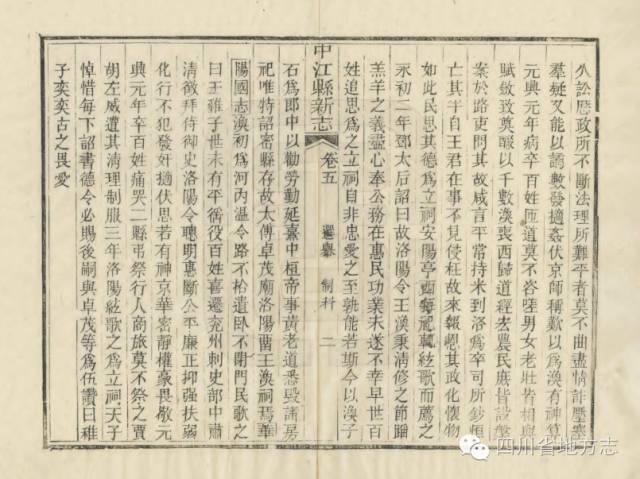 久訟歷政所不斷法理所難平者莫不曲盡情詐壓塞
羣疑又能以譎數發擿姦伏京師稱歎以爲渙有神算
元興元年病卒百姓市道莫不咨嗟男女老壯皆相與
賦斂致奠醊以千數渙喪西歸道經宏農民庶皆設槃
案於路吏問其故咸言平常持米到洛爲卒司所鈔恒
亡其半自王君在事不見侵枉故來報恩其政化懷物
如此民思其德爲立祠安陽亭西每祀輒絃歌而薦之
永初二年鄧太后詔曰故洛陽令王渙秉清修之節蹈
羔羊之義盡心奉公務在惠民功業未遂不幸早世百
姓追思爲之立祠自非忠愛之至孰能若斯今以渙子
中江縣新志 卷五 選舉 制科 二
石爲郎中以勸勞勤延熹中桓帝事黃老道悉毀諸房
祀唯特詔密縣存故太傅卓茂廟洛陽留王渙祠焉華
陽國志渙初爲河內溫令路不拾遺臥不閉門民歌之
曰王稚子世未有平徭役百姓喜遷兗州刺史部中肅
清徵拜侍御史洛陽令聰明惠斷公平廉正抑强扶弱
化行不犯發奸擿伏思若有神京華密靜權豪畏敬元
興元年卒百姓痛哭二縣弔祭行人商旅莫不祭之賈
胡左威遺其清理制服三年洛陽絃歌之爲立祠天子
悼惜每下詔書德令必賜後嗣與卓茂等爲伍讚曰稚
子奕奕古之畏愛
四川省地方志